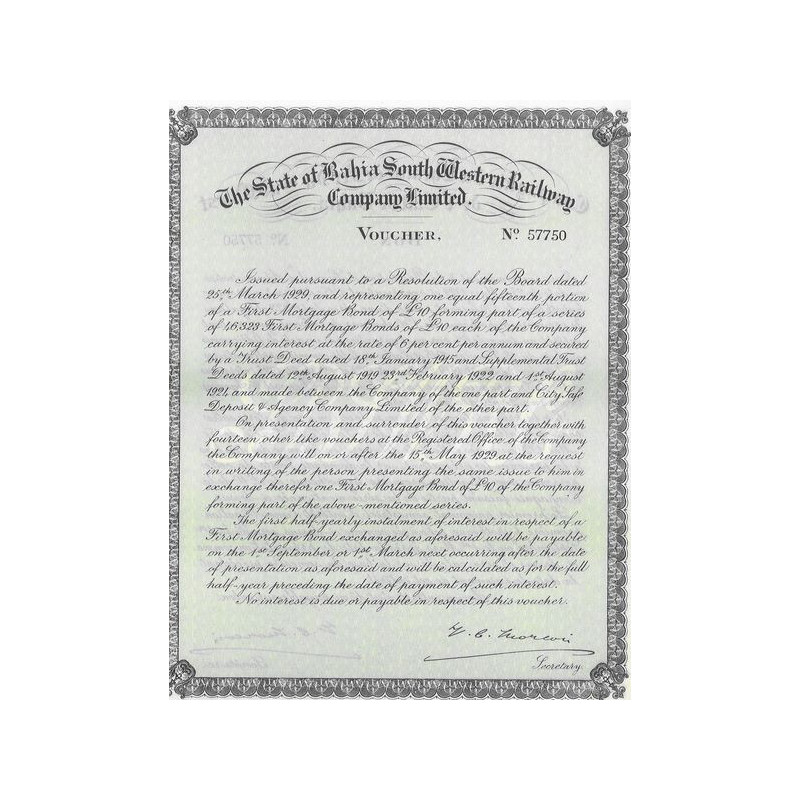 The State of Bahia South Western Railway
Company Limited.
VOUCHER,
Nº 57750
Issued pursuant to a Resolution of the Board dated
25th March 1929, and representing one equal fifteenth portion
of a First Mortgage Bond of £10 forming part of a series
of 46,323 First Mortgage Bonds of £10 each of the Company
carrying interest at the rate of 6 per cent per annum and secured
by a Trust Deed dated 18th January 1915 and Supplemental Trust
Deeds dated 12th August 1919 23rd February 1922 and 1st August
1921, and made between the Company of the one part and City Safe
Deposit & Agency Company Limited of the other part.
On presentation and surrender of this voucher together with
fourteen other like vouchers at the Registered Office of the Company
the Company will on or after the 15th May 1929 at the request
in writing of the person presenting the same issue to him in
exchange therefor one First Mortgage Bond of £10 of the Company
forming part of the above-mentioned series.
The first half-yearly instalment of interest in respect of a
First Mortgage Bond exchanged as aforesaid will be payable
on the 1st September or 1st March next occurring after the date
of presentation as aforesaid and will be calculated as for the full
half-year preceding the date of payment of such interest.
No interest is due or payable in respect of this voucher.
Secretary.